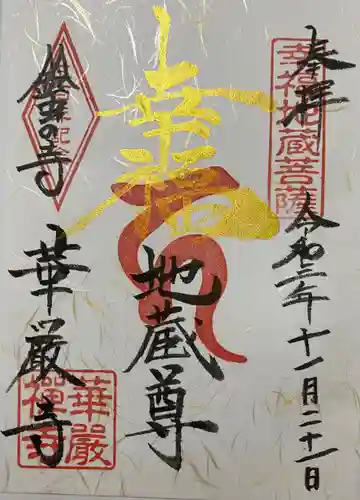 奉拝
幸福地蔵菩薩
令和二年十一月二十一日
幸福
地蔵尊
鈴虫の寺
華厳寺
華嚴禅寺